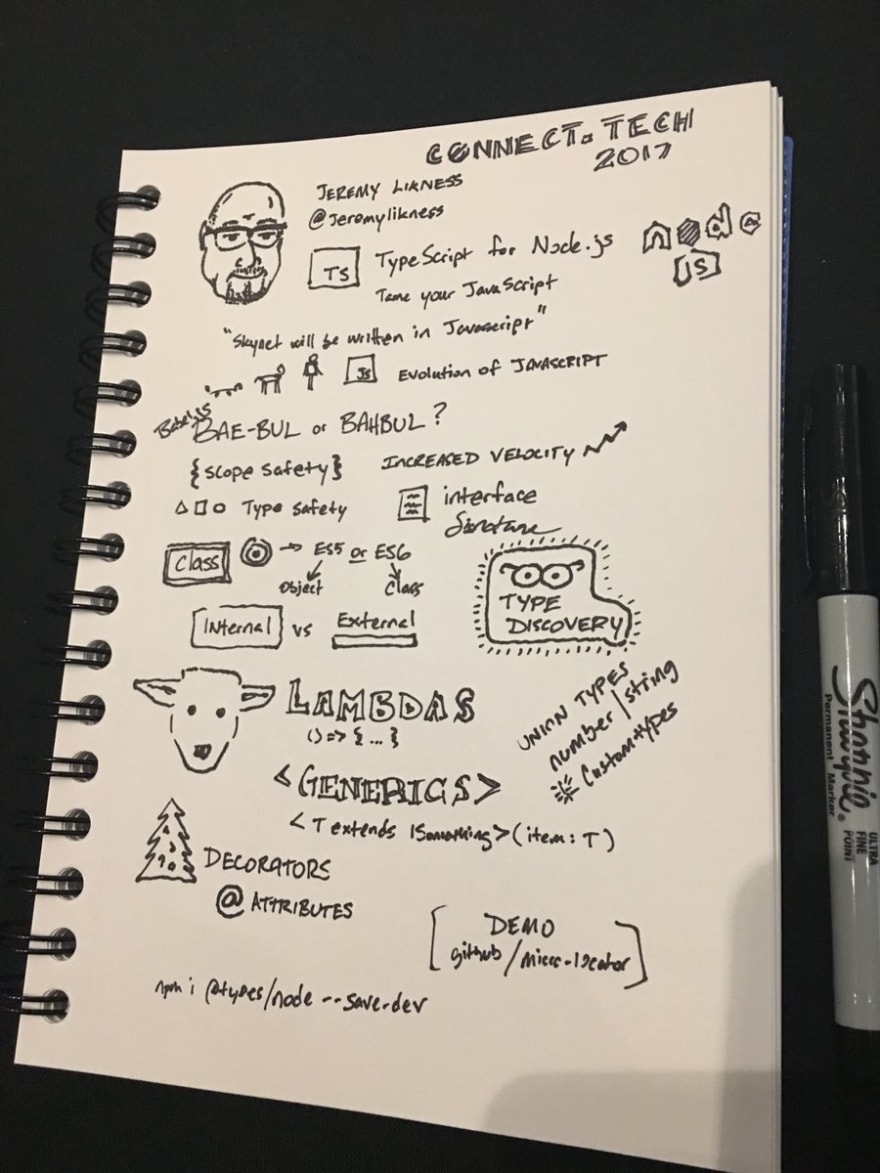 CONNECT.TECH
2017
JEREMY LIKNESS
@Jeremylikness
TS
TypeScript for Node.js
node
JS
Tame your JavaScript
"Skynet will be written in Javascript"
JS
Evolution of JAVASCRIPT
Babel.js
BAE-BUL or BAHBUL?
{scope safety}
INCREASED VELOCITY
Type safety
interface
Class
→ ES5 or ES6
Object
Class
TYPE
DISCOVERY
INternal vs External
LAMBDAS
() => { ... }
UNION TYPES
number | string
Custom types
<GENERICS>
<T extends ISomething>(item: T)
DECORATORS
@ ATTRIBUTES
DEMO
github/micro-locator
npm i @types/node --save-dev
Sharpie®
Permanent Marker
ULTRA
FINE
POINT